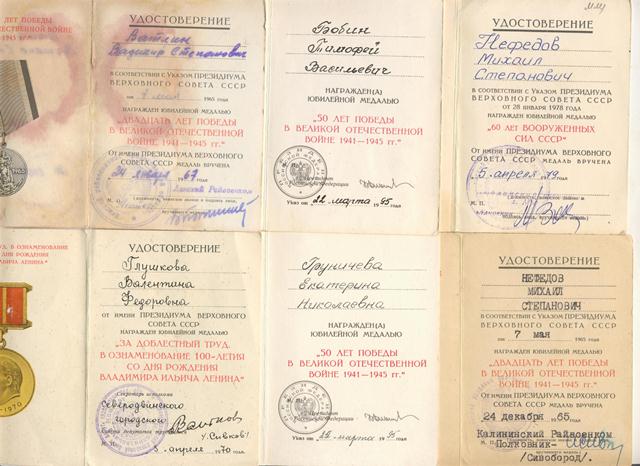 ЛЕТ ПОБЕДЫ
ЕЧЕСТВЕННОЙ ВОЙНЕ
1945 гг."
УДОСТОВЕРЕНИЕ
Владимир Степанович
В СООТВЕТСТВИИ С УКАЗОМ ПРЕЗИДИУМА
ВЕРХОВНОГО СОВЕТА СССР
от 7 мая 1965 года
НАГРАЖДЕН ЮБИЛЕЙНОЙ МЕДАЛЬЮ
"ДВАДЦАТЬ ЛЕТ ПОБЕДЫ
В ВЕЛИКОЙ ОТЕЧЕСТВЕННОЙ
ВОЙНЕ 1941—1945 гг."
ОТ ИМЕНИ ПРЕЗИДИУМА ВЕРХОВНОГО
СОВЕТА СССР МЕДАЛЬ ВРУЧЕНА
24 января 1967
М. П.
Бобин
Тимофей
Васильевич
НАГРАЖДЕН(А)
ЮБИЛЕЙНОЙ МЕДАЛЬЮ
"50 ЛЕТ ПОБЕДЫ
В ВЕЛИКОЙ ОТЕЧЕСТВЕННОЙ
ВОЙНЕ 1941—1945 гг."
Президент
Российской Федерации
Указ от 22 марта 1995 года
УДОСТОВЕРЕНИЕ
Нефедов
Михаил
Степанович
В СООТВЕТСТВИИ С УКАЗОМ ПРЕЗИДИУМА
ВЕРХОВНОГО СОВЕТА СССР
от 28 января 1978 года
НАГРАЖДЕН ЮБИЛЕЙНОЙ МЕДАЛЬЮ
"60 ЛЕТ ВООРУЖЕННЫХ
СИЛ СССР"
ОТ ИМЕНИ ПРЕЗИДИУМА ВЕРХОВНОГО
СОВЕТА СССР МЕДАЛЬ ВРУЧЕНА
5 апреля 1979
М. П.
ТРУД. В ОЗНАМЕНОВАНИЕ
ДНЯ РОЖДЕНИЯ
ИЛЬИЧА ЛЕНИНА"
1970
УДОСТОВЕРЕНИЕ
Глушкова
Валентина
Федоровна
ОТ ИМЕНИ ПРЕЗИДИУМА ВЕРХОВНОГО
СОВЕТА СССР
НАГРАЖДЕН ЮБИЛЕЙНОЙ МЕДАЛЬЮ
"ЗА ДОБЛЕСТНЫЙ ТРУД.
В ОЗНАМЕНОВАНИЕ 100-ЛЕТИЯ
СО ДНЯ РОЖДЕНИЯ
ВЛАДИМИРА ИЛЬИЧА ЛЕНИНА"
Секретарь исполкома
Северодвинского
городского
Совета депутатов трудящихся
5 апреля 1970 г.
Груничева
Екатерина
Николаевна
НАГРАЖДЕН(А)
ЮБИЛЕЙНОЙ МЕДАЛЬЮ
"50 ЛЕТ ПОБЕДЫ
В ВЕЛИКОЙ ОТЕЧЕСТВЕННОЙ
ВОЙНЕ 1941—1945 гг."
Президент
Российской Федерации
Указ от 22 марта 1995 года
УДОСТОВЕРЕНИЕ
НЕФЕДОВ
МИХАИЛ
СТЕПАНОВИЧ
В СООТВЕТСТВИИ С УКАЗОМ ПРЕЗИДИУМА
ВЕРХОВНОГО СОВЕТА СССР
от 7 мая 1965 года
НАГРАЖДЕН ЮБИЛЕЙНОЙ МЕДАЛЬЮ
"ДВАДЦАТЬ ЛЕТ ПОБЕДЫ
В ВЕЛИКОЙ ОТЕЧЕСТВЕННОЙ
ВОЙНЕ 1941—1945 гг."
ОТ ИМЕНИ ПРЕЗИДИУМА ВЕРХОВНОГО
СОВЕТА СССР МЕДАЛЬ ВРУЧЕНА
24 декабря 1965
Калининский Райвоенком
Полковник-
/Сивобород/.